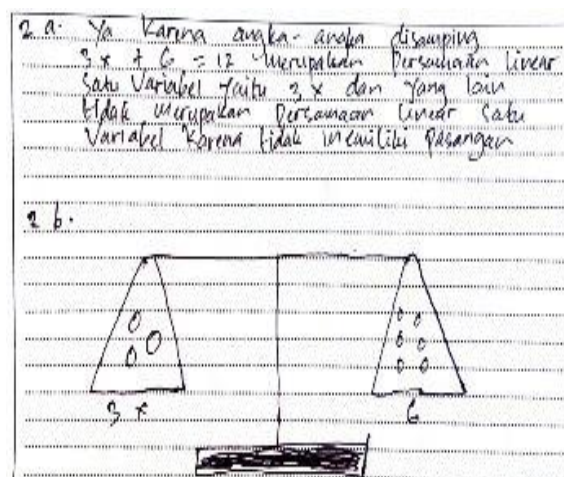 2 a. Ya Karena angka-angka disamping
3x + 6 = 12 merupakan Persamaan linear
Satu Variabel yaitu 3x dan yang lain
tidak merupakan Persamaan linear satu
Variabel Karena tidak memiliki Pasangan
2 b.
3 x 6